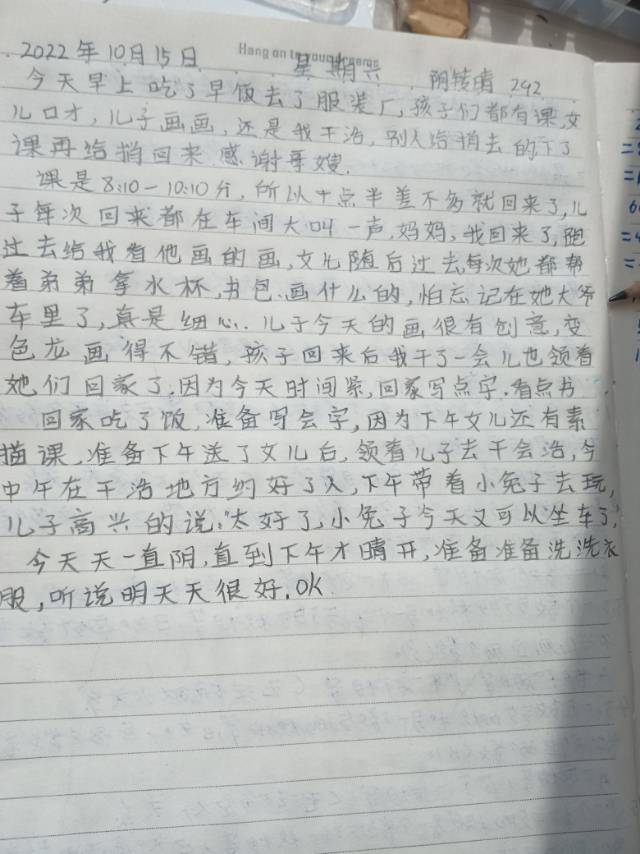 Hang on to your dreams
2022年10月15日 星期六 阴转晴 292
今天早上吃了早饭去了服装厂,孩子们都有课,女
儿口才,儿子画画,还是我干活,别人给捎去的下了
课再给捎回来感谢哥嫂.
课是8:10-10:10分,所以十点半差不多就回来了,儿
子每次回来都在车间大叫一声,妈妈,我回来了,跑
过去给我看他画的画,女儿随后过去每次她都帮
着弟弟拿水杯,书包.画什么的,怕忘记在她大爷
车里了,真是细心.儿子今天的画很有创意,变
色龙画得不错,孩子回来后我干了一会儿也领着
她们回家了.因为今天时间紧,回家写点字.看点书
回家吃了饭,准备写会字,因为下午女儿还有素
描课,准备下午送了女儿后,领着儿子去干会活,今
中午在干活地方约好了人,下午带着小兔子去玩,
儿子高兴的说:太好了,小兔子今天又可以坐车了,
今天天一直阴,直到下午才晴开,准备准备洗洗衣
服,听说明天天很好.OK